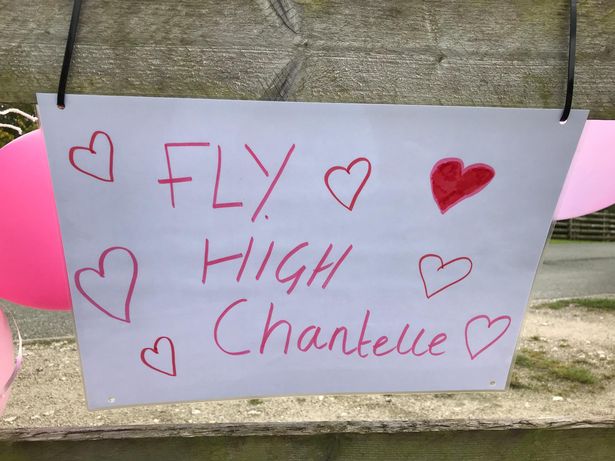 FLY
HIGH
Chantelle